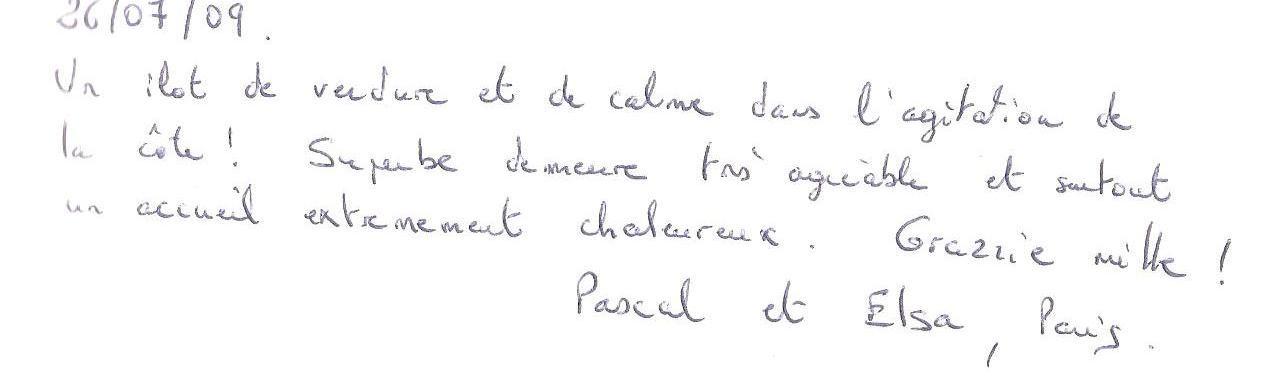 26/07/09.
Un ilot de verdure et de calme dans l'agitation de
la côte ! Superbe demeure très agréable et surtout
un accueil extremement chaleureux. Grazzie mille !
Pascal et Elsa, Paris.